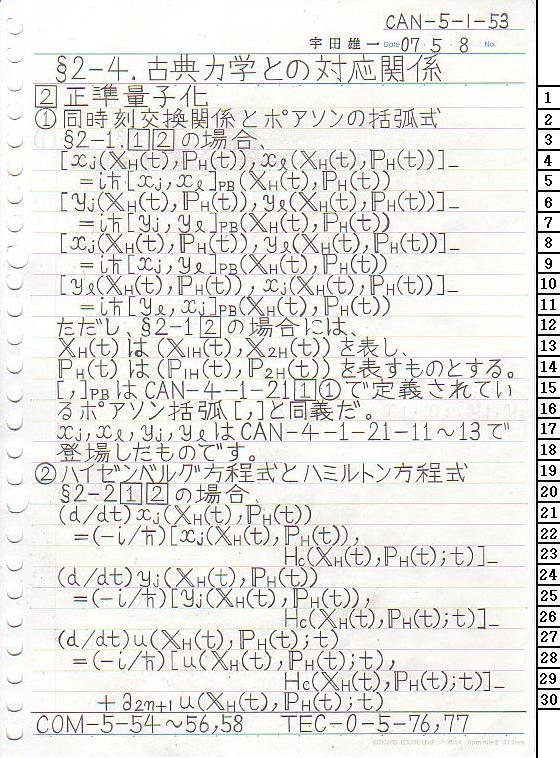 CAN-5-1-53
宇田雄一 Date 07・5・8 No.
§2-4. 古典力学との対応関係
2 正準量子化
① 同時刻交換関係とポアソンの括弧式
§2-1.1 2 の場合、
[xj(XH(t),PH(t)),xℓ(XH(t),PH(t))]−
=iħ[xj,xℓ]PB(XH(t),PH(t))
[yj(XH(t),PH(t)),yℓ(XH(t),PH(t))]−
=iħ[yj,yℓ]PB(XH(t),PH(t))
[xj(XH(t),PH(t)),yℓ(XH(t),PH(t))]−
=iħ[xj,yℓ]PB(XH(t),PH(t))
[yℓ(XH(t),PH(t)),xj(XH(t),PH(t))]−
=iħ[yℓ,xj]PB(XH(t),PH(t))
ただし、§2-1 2 の場合には、
XH(t) は (X1H(t),X2H(t)) を表し、
PH(t) は (P1H(t),P2H(t)) を表すものとする。
[,]PBはCAN-4-1-21 1 ①で定義されてい
るポアソン括弧[,]と同義だ。
xj,xℓ,yj,yℓはCAN-4-1-21-11〜13で
登場したものです。
② ハイゼンベルグ方程式とハミルトン方程式
§2-2 1 2 の場合、
(d/dt)xj(XH(t),PH(t))
=(-i/ħ)[xj(XH(t),PH(t)),
Hc(XH(t),PH(t);t)]−
(d/dt)yj(XH(t),PH(t))
=(-i/ħ)[yj(XH(t),PH(t)),
Hc(XH(t),PH(t);t)]−
(d/dt)u(XH(t),PH(t);t)
=(-i/ħ)[u(XH(t),PH(t);t),
Hc(XH(t),PH(t);t)]−
+∂2n+1u(XH(t),PH(t);t)
COM-5-54〜56,58 TEC-0-5-76,77
1
2
3
4
5
6
7
8
9
10
11
12
13
14
15
16
17
18
19
20
21
22
23
24
25
26
27
28
29
30